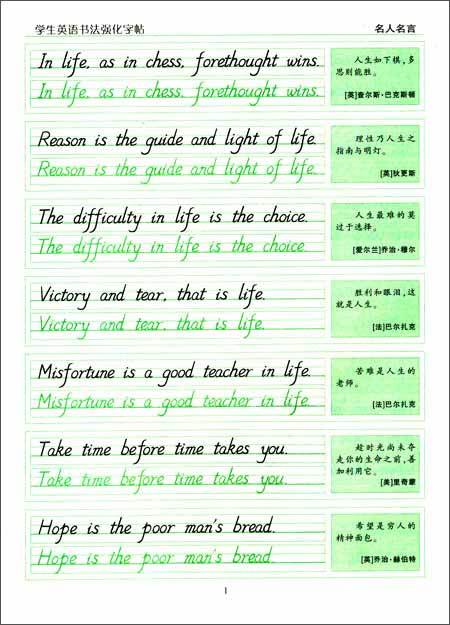 学生英语书法强化字帖
名人名言
In life, as in chess, forethought wins.
In life, as in chess, forethought wins.
人生如下棋,多
思则能胜。
[英]查尔斯·巴克斯顿
Reason is the guide and light of life.
Reason is the guide and light of life.
理性乃人生之
指南与明灯。
[英]狄更斯
The difficulty in life is the choice.
The difficulty in life is the choice.
人生最难的莫
过于选择。
[爱尔兰]乔治·穆尔
Victory and tear, that is life.
Victory and tear, that is life.
胜利和眼泪,这
就是人生。
[法]巴尔扎克
Misfortune is a good teacher in life.
Misfortune is a good teacher in life.
苦难是人生的
老师。
[法]巴尔扎克
Take time before time takes you.
Take time before time takes you.
趁时光尚未夺
走你的生命之前,善
加利用它。
[美]里奇蒙
Hope is the poor man's bread.
Hope is the poor man's bread.
希望是穷人的
精神面包。
[英]乔治·赫伯特
1